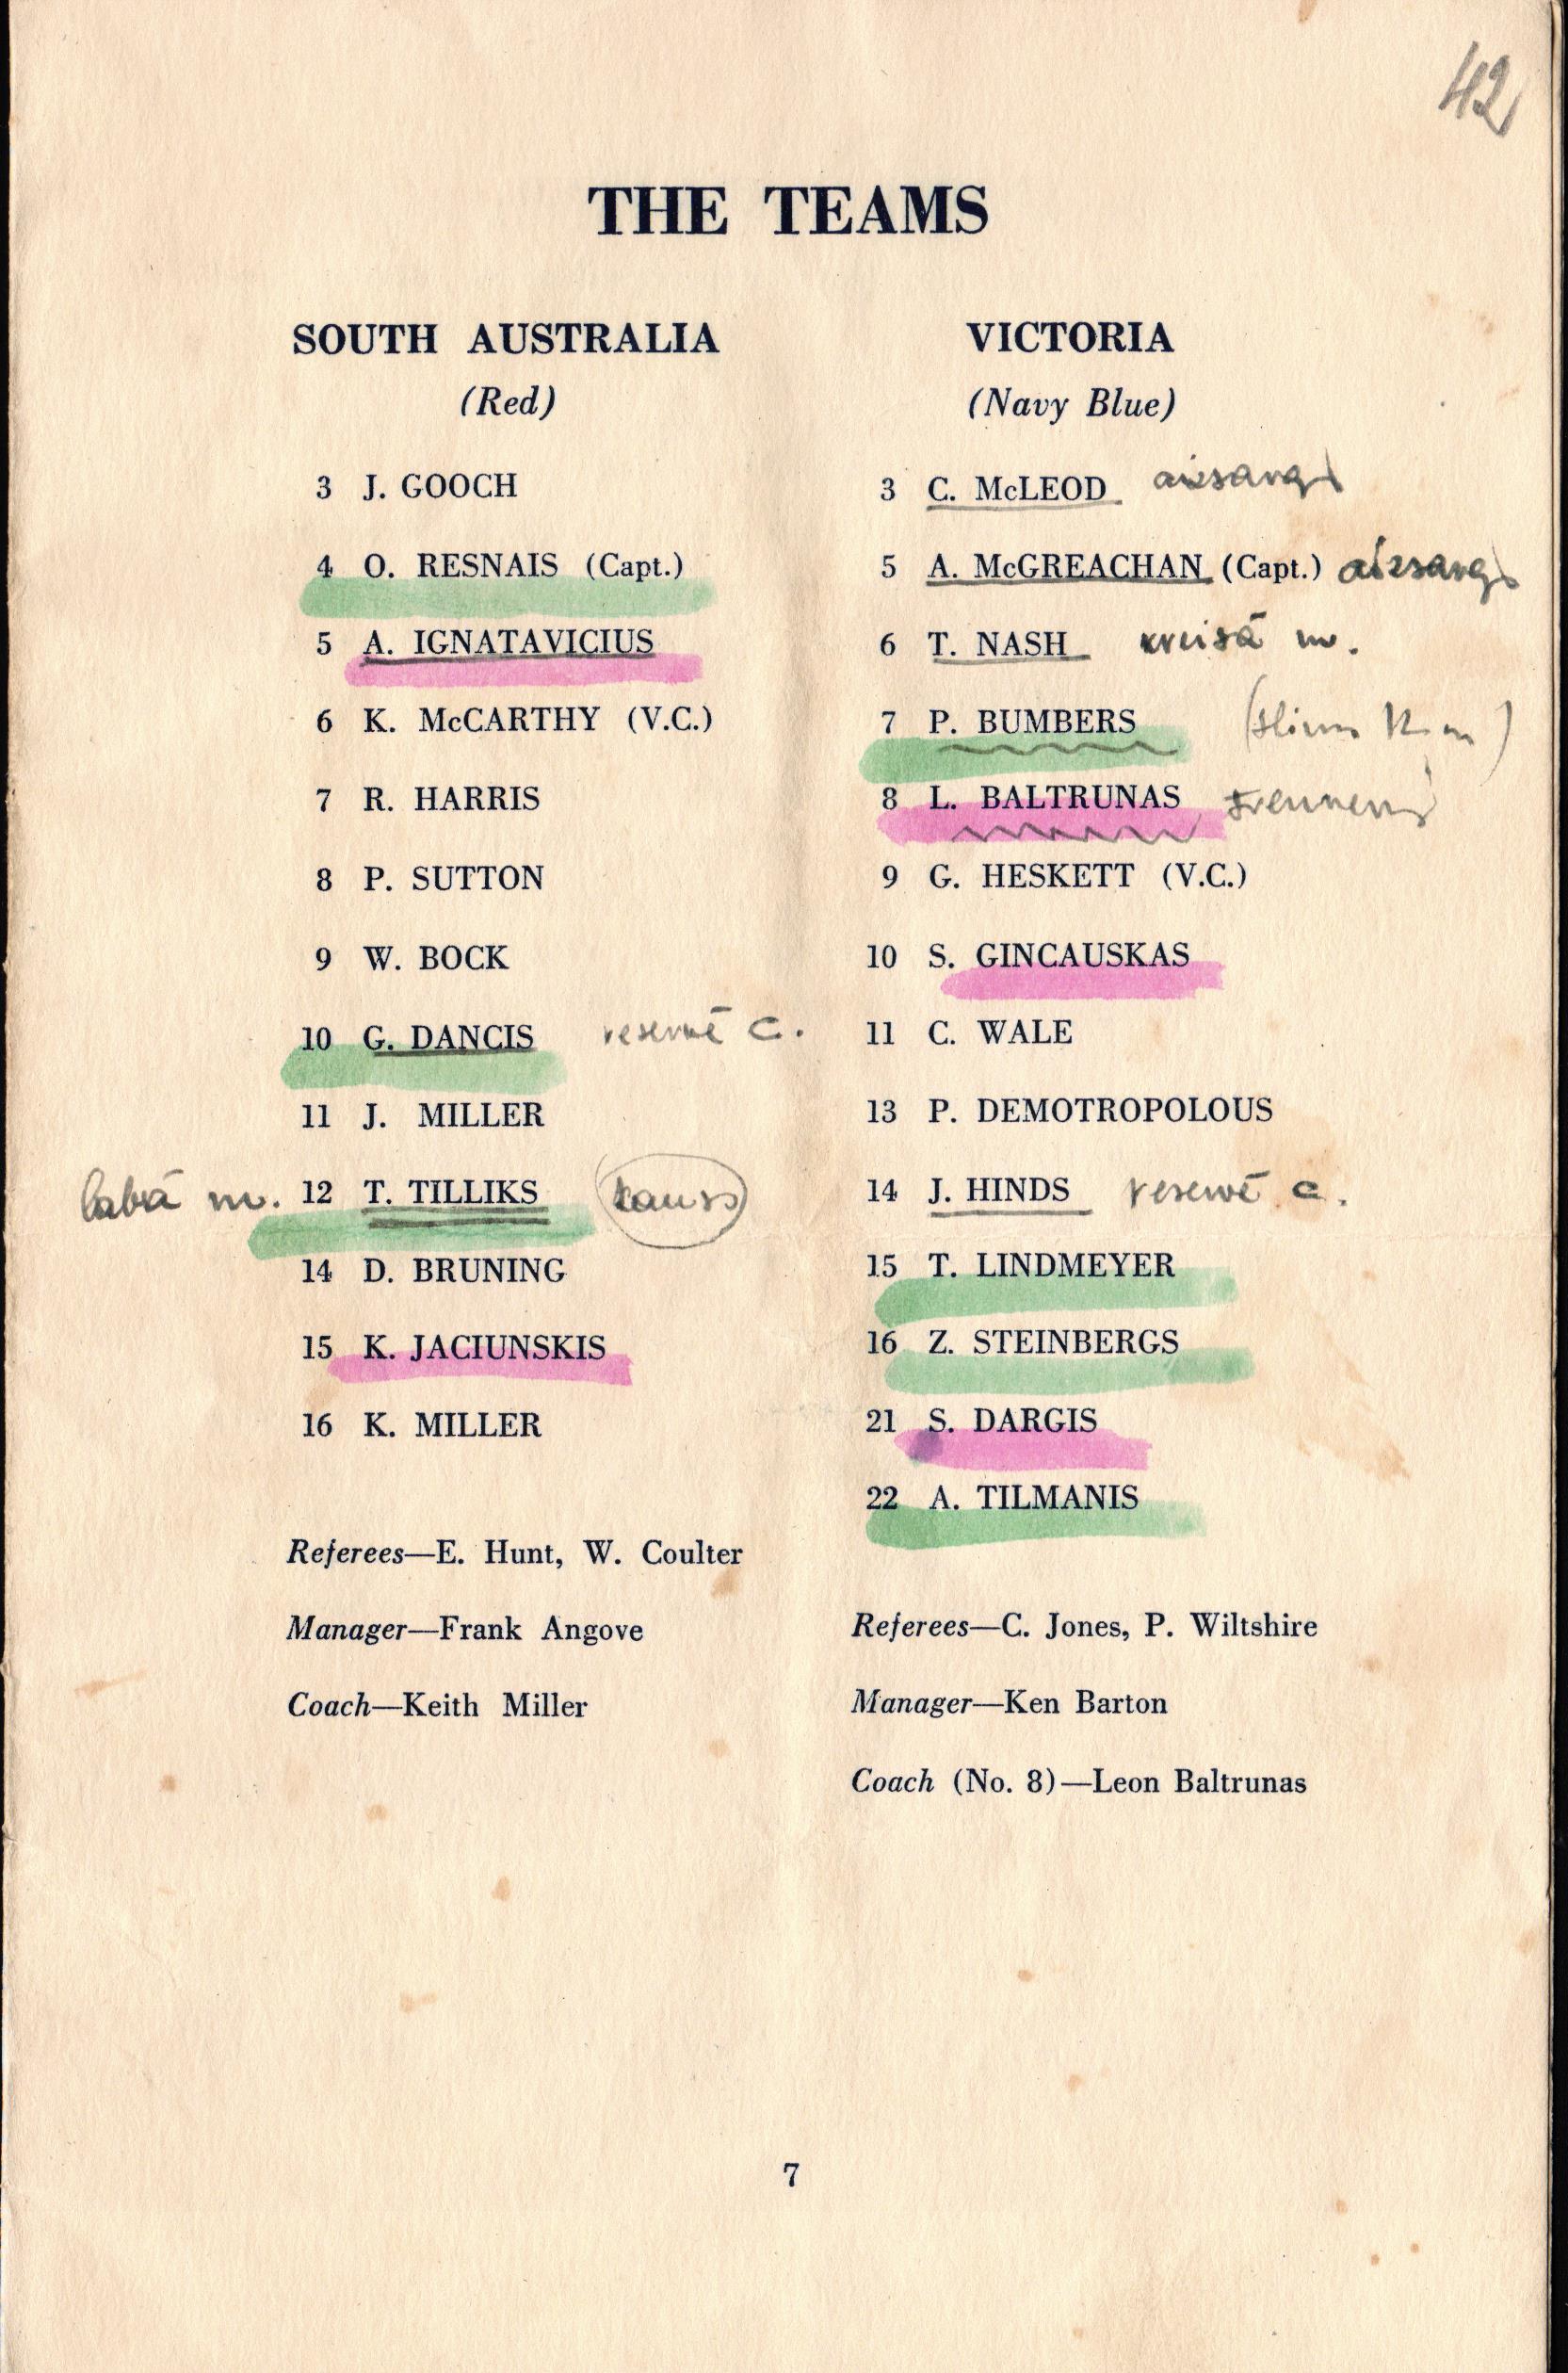 42
THE TEAMS
SOUTH AUSTRALIA
(Red)
3 J. GOOCH
4 O. RESNAIS (Capt.)
5 A. IGNATAVICIUS
6 K. McCARTHY (V.C.)
7 R. HARRIS
8 P. SUTTON
9 W. BOCK
10 G. DANCIS reservē c.
11 J. MILLER
labā m. 12 T. TILLIKS
14 D. BRUNING
15 K. JACIUNSKIS
16 K. MILLER
Referees—E. Hunt, W. Coulter
Manager—Frank Angove
Coach—Keith Miller
VICTORIA
(Navy Blue)
3 C. McLEOD aizsargs
5 A. McGREACHAN (Capt.) aizsargs
6 T. NASH kreisā m.
7 P. BUMBERS
8 L. BALTRUNAS
9 G. HESKETT (V.C.)
10 S. GINCAUSKAS
11 C. WALE
13 P. DEMOTROPOLOUS
14 J. HINDS reservē c.
15 T. LINDMEYER
16 Z. STEINBERGS
21 S. DARGIS
22 A. TILMANIS
Referees—C. Jones, P. Wiltshire
Manager—Ken Barton
Coach (No. 8)—Leon Baltrunas
7